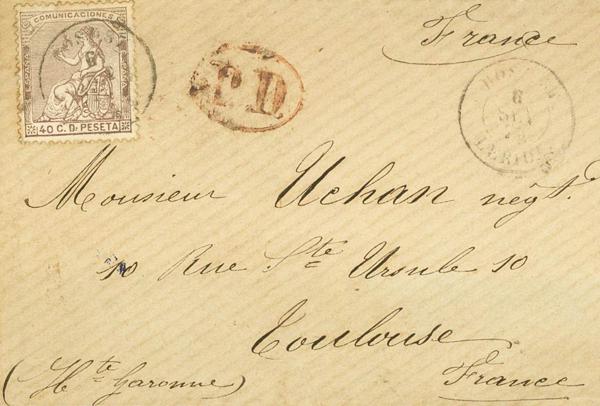 COMUNICACIONES
ESPAÑA
40 C. D. PESETA
P.D.
France
6
Monsieur Uchan négt.
10 Rue Ste Ursule 10
Toulouse
(Hte Garonne)
France